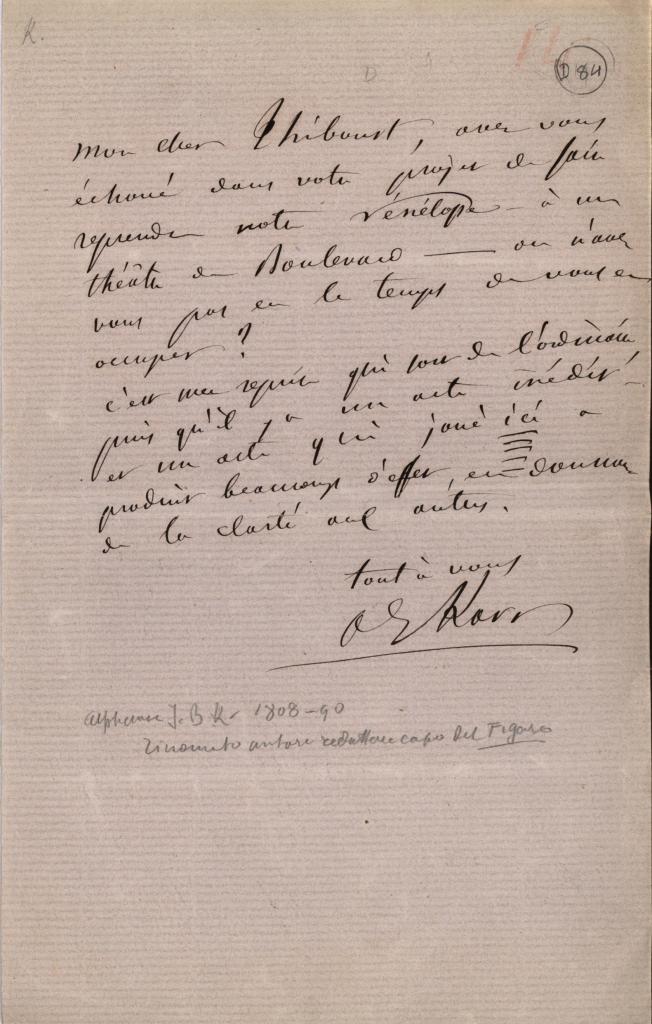 K.
D 84
mon cher Thiboust, avez vous
échoué dans votre projet de faire
reprendre notre Pénélope – à un
théâtre du Boulevard — ou n'avez
vous pas eu le temps de vous en
occuper ?
c'est une reprise qui sort de l'ordinaire
puis qu'il y a un acte inédit –
et un acte qui joué ici a
produit beaucoup d'effet, en donnant
de la clarté aux autres.
tout à vous
A Karr
Alphonse J. B K. 1808–90
rinomato autore redattore capo del Figaro